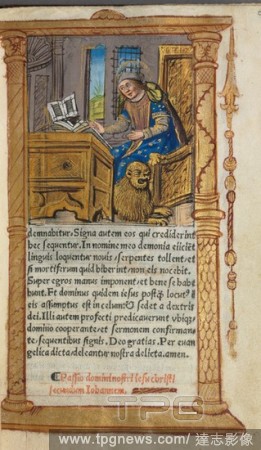 demnabitur. Signa autem eos qui crediderint
hec sequentur. In nomine meo demonia eiiciẽt
linguis loquentur nouis serpentes tollent, et
si mortiferum quid biberint non eis nocebit.
Super egros manus imponent et bene se habe
bunt. Et dominus quidem iesus postq̃ locutꝰ
eis assumptus est in celum & sedet a dextris
dei. Illi autem profecti predicauerunt vbiq;
domino cooperante, et sermonem confirman
te, sequentibus signis. Deo gratias. Per euan
gelica dicta, deleantur nostra delicta. amen.
Passio domini nostri iesu christi
secundum Iohannem.
TPG
www.tpgnews.com / 達志影像